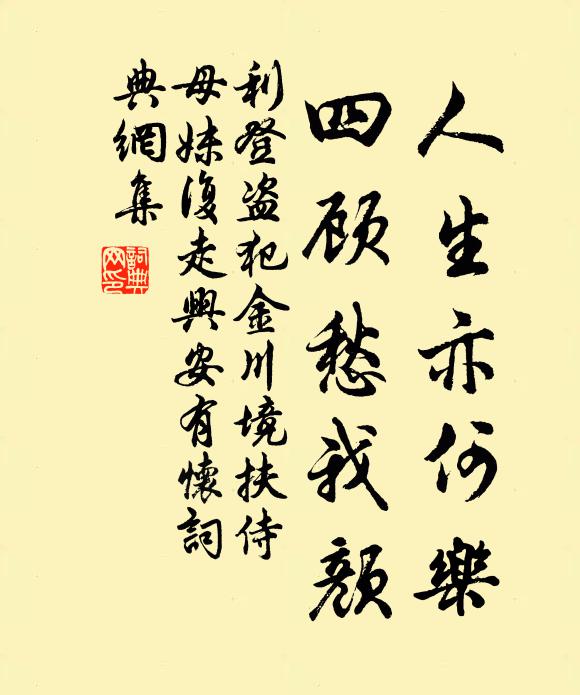 人生亦何樂
四顾愁我顏
利登盗犯金川境扶侍
母妹復走興安有懷詞
典網集
詞典
网印